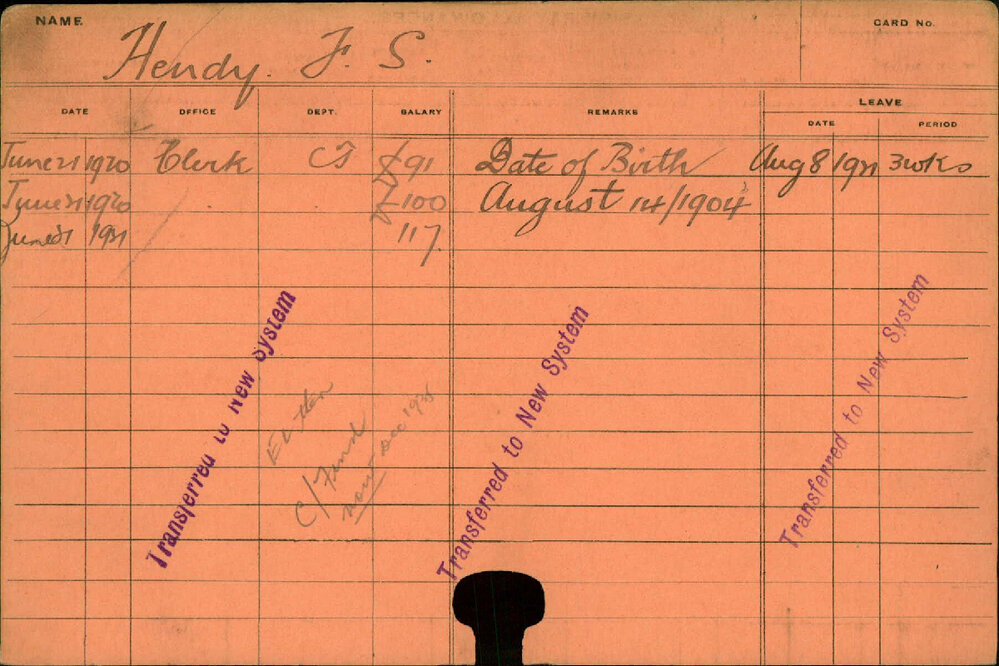 NAME
CARD No.
Hendy. F. S.
DATE OFFICE DEPT. SALARY REMARKS LEAVE
DATE PERIOD
June 21 1920 Clerk £91 Date of Birth Aug 8 1921 3 wks
June 21 1920 £100 August 14/1904
June 21 1921 117.
Transferred to New System
Transferred to New System
Transferred to New System
C/ Fund